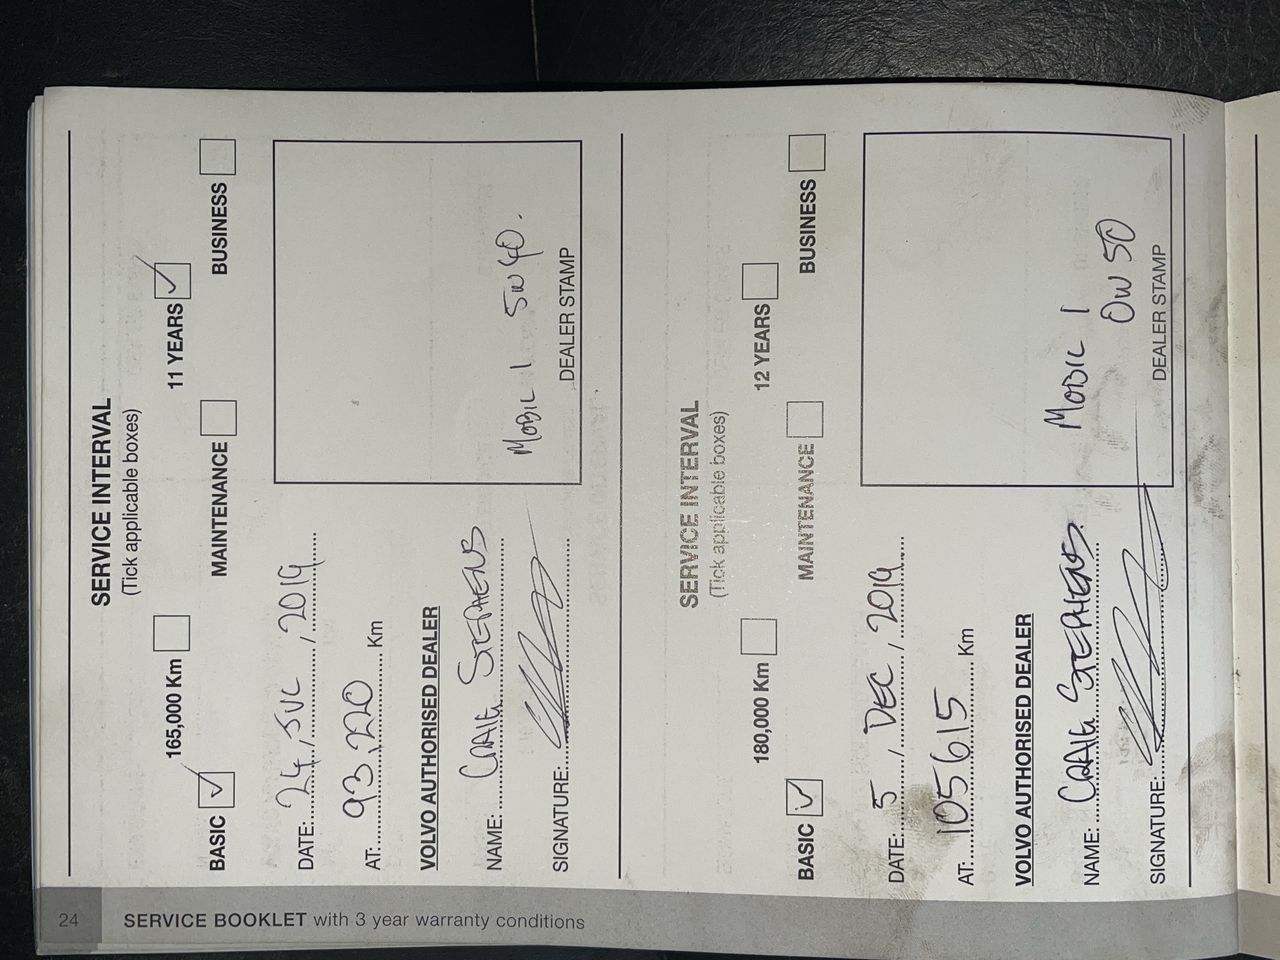 SERVICE INTERVAL
(Tick applicable boxes)
165,000 Km 11 YEARS
BASIC MAINTENANCE BUSINESS
DATE: 24, JUL, 2019
AT: 93,220 Km
VOLVO AUTHORISED DEALER
NAME: CRAIG STEPHENS
SIGNATURE:
MOBIL 1 5W40.
DEALER STAMP
SERVICE INTERVAL
(Tick applicable boxes)
180,000 Km 12 YEARS
BASIC MAINTENANCE BUSINESS
DATE: 5, DEC, 2019
AT: 105615 Km
VOLVO AUTHORISED DEALER
NAME: CRAIG STEPHENS
SIGNATURE:
MOBIL 1
0W50
DEALER STAMP
24 SERVICE BOOKLET with 3 year warranty conditions